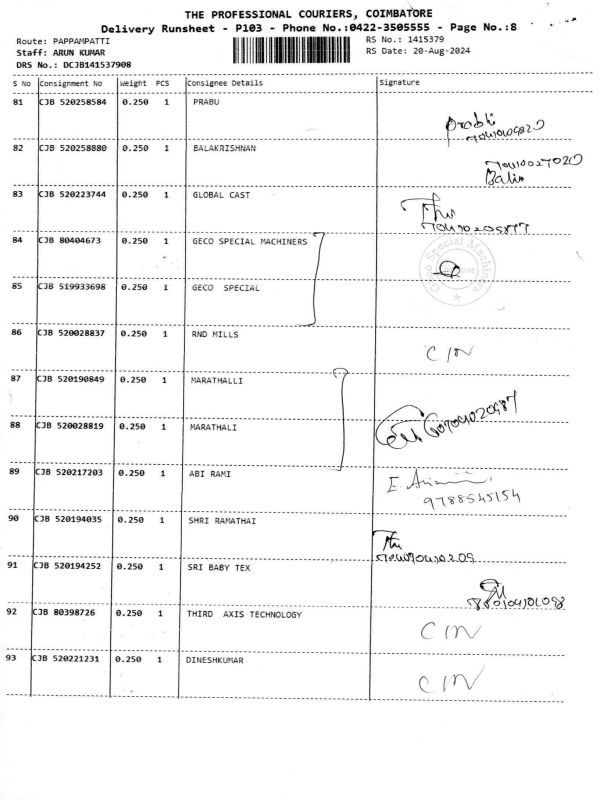 THE PROFESSIONAL COURIERS, COIMBATORE
Delivery Runsheet - P103 - Phone No.:0422-3505555 - Page No.:8
Route: PAPPAMPATTI
RS No.: 1415379
Staff: ARUN KUMAR
RS Date: 20-Aug-2024
DRS No.: DCJB141537908
S No Consignment No Weight PCS Consignee Details Signature
81 CJB 520258584 0.250 1 PRABU
82 CJB 520258880 0.250 1 BALAKRISHNAN
83 CJB 520223744 0.250 1 GLOBAL CAST
84 CJB 80404673 0.250 1 GECO SPECIAL MACHINERS
Geco Special Machiners
85 CJB 519933698 0.250 1 GECO SPECIAL
86 CJB 520028837 0.250 1 RND MILLS
C/N
87 CJB 520190849 0.250 1 MARATHALLI
88 CJB 520028819 0.250 1 MARATHALI
89 CJB 520217203 0.250 1 ABI RAMI
9788545154
90 CJB 520194035 0.250 1 SHRI RAMATHAI
91 CJB 520194252 0.250 1 SRI BABY TEX
92 CJB 80398726 0.250 1 THIRD AXIS TECHNOLOGY
C/N
93 CJB 520221231 0.250 1 DINESHKUMAR
C/N